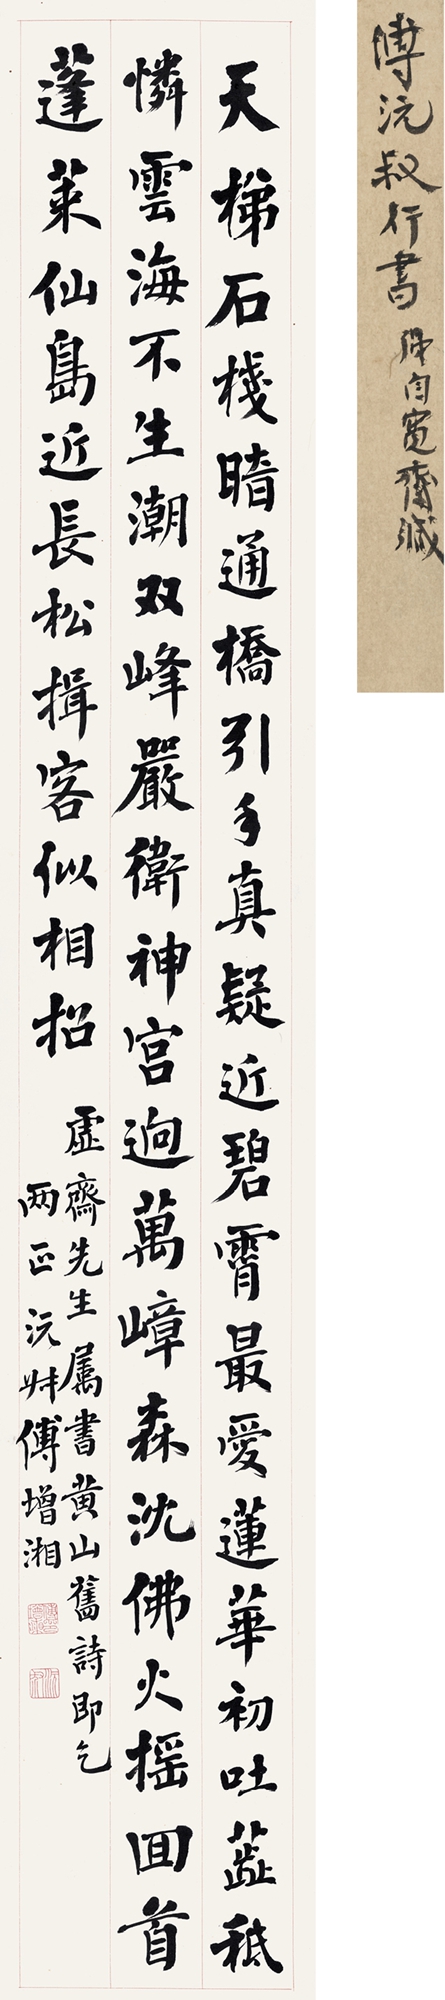 傅沅叔行書
自寬齋藏
天梯石棧暗通橋引手真疑近碧霄最愛蓮華初吐蕋秪
憐雲海不生潮双峰嚴衛神宮逈萬嶂森沈佛火摇囬首
蓬萊仙島近長松揖客似相招
虛齋先生属書黄山舊詩即乞
两正沅尗傅增湘